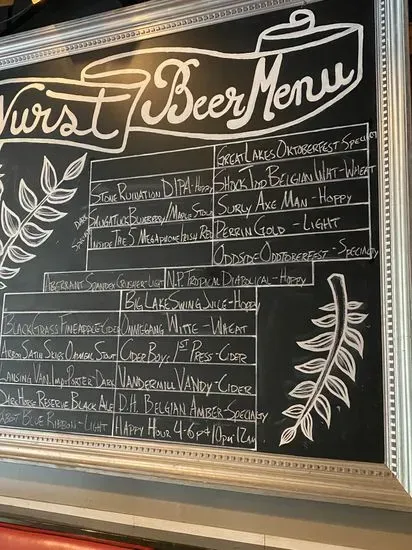 Wurst Beer Menu
Great Lakes Oktoberfest Specialty
Stone Ruination DIPA-Hoppy
Shock Top Belgian Wht-Wheat
Dark
Saugatuck Blueberry/Maple Stout
Surly Axe Man-Hoppy
Specialty
Inside The 5 Megaphone Irish Red
Perrin Gold-Light
Oddside Oddtoberfest-Specialty
Aberrant Spandex Crusher-Light
N.P. Tropical Diabolical-Hoppy
Big Lake Swing Juice-Hoppy
Blackgrass Fineapple Cider
Ommegang Witte-Wheat
Arbor Satin Skies Oatmeal Stout
Cider Boys 1st Press-Cider
Lansing Van Imp. Porter Dark
Vandermill Vandy-Cider
Dark Horse Reserve Black Ale
D.H. Belgian Amber-Specialty
Pabst Blue Ribbon-Light
Happy Hour 4-6p + 10pm-12am